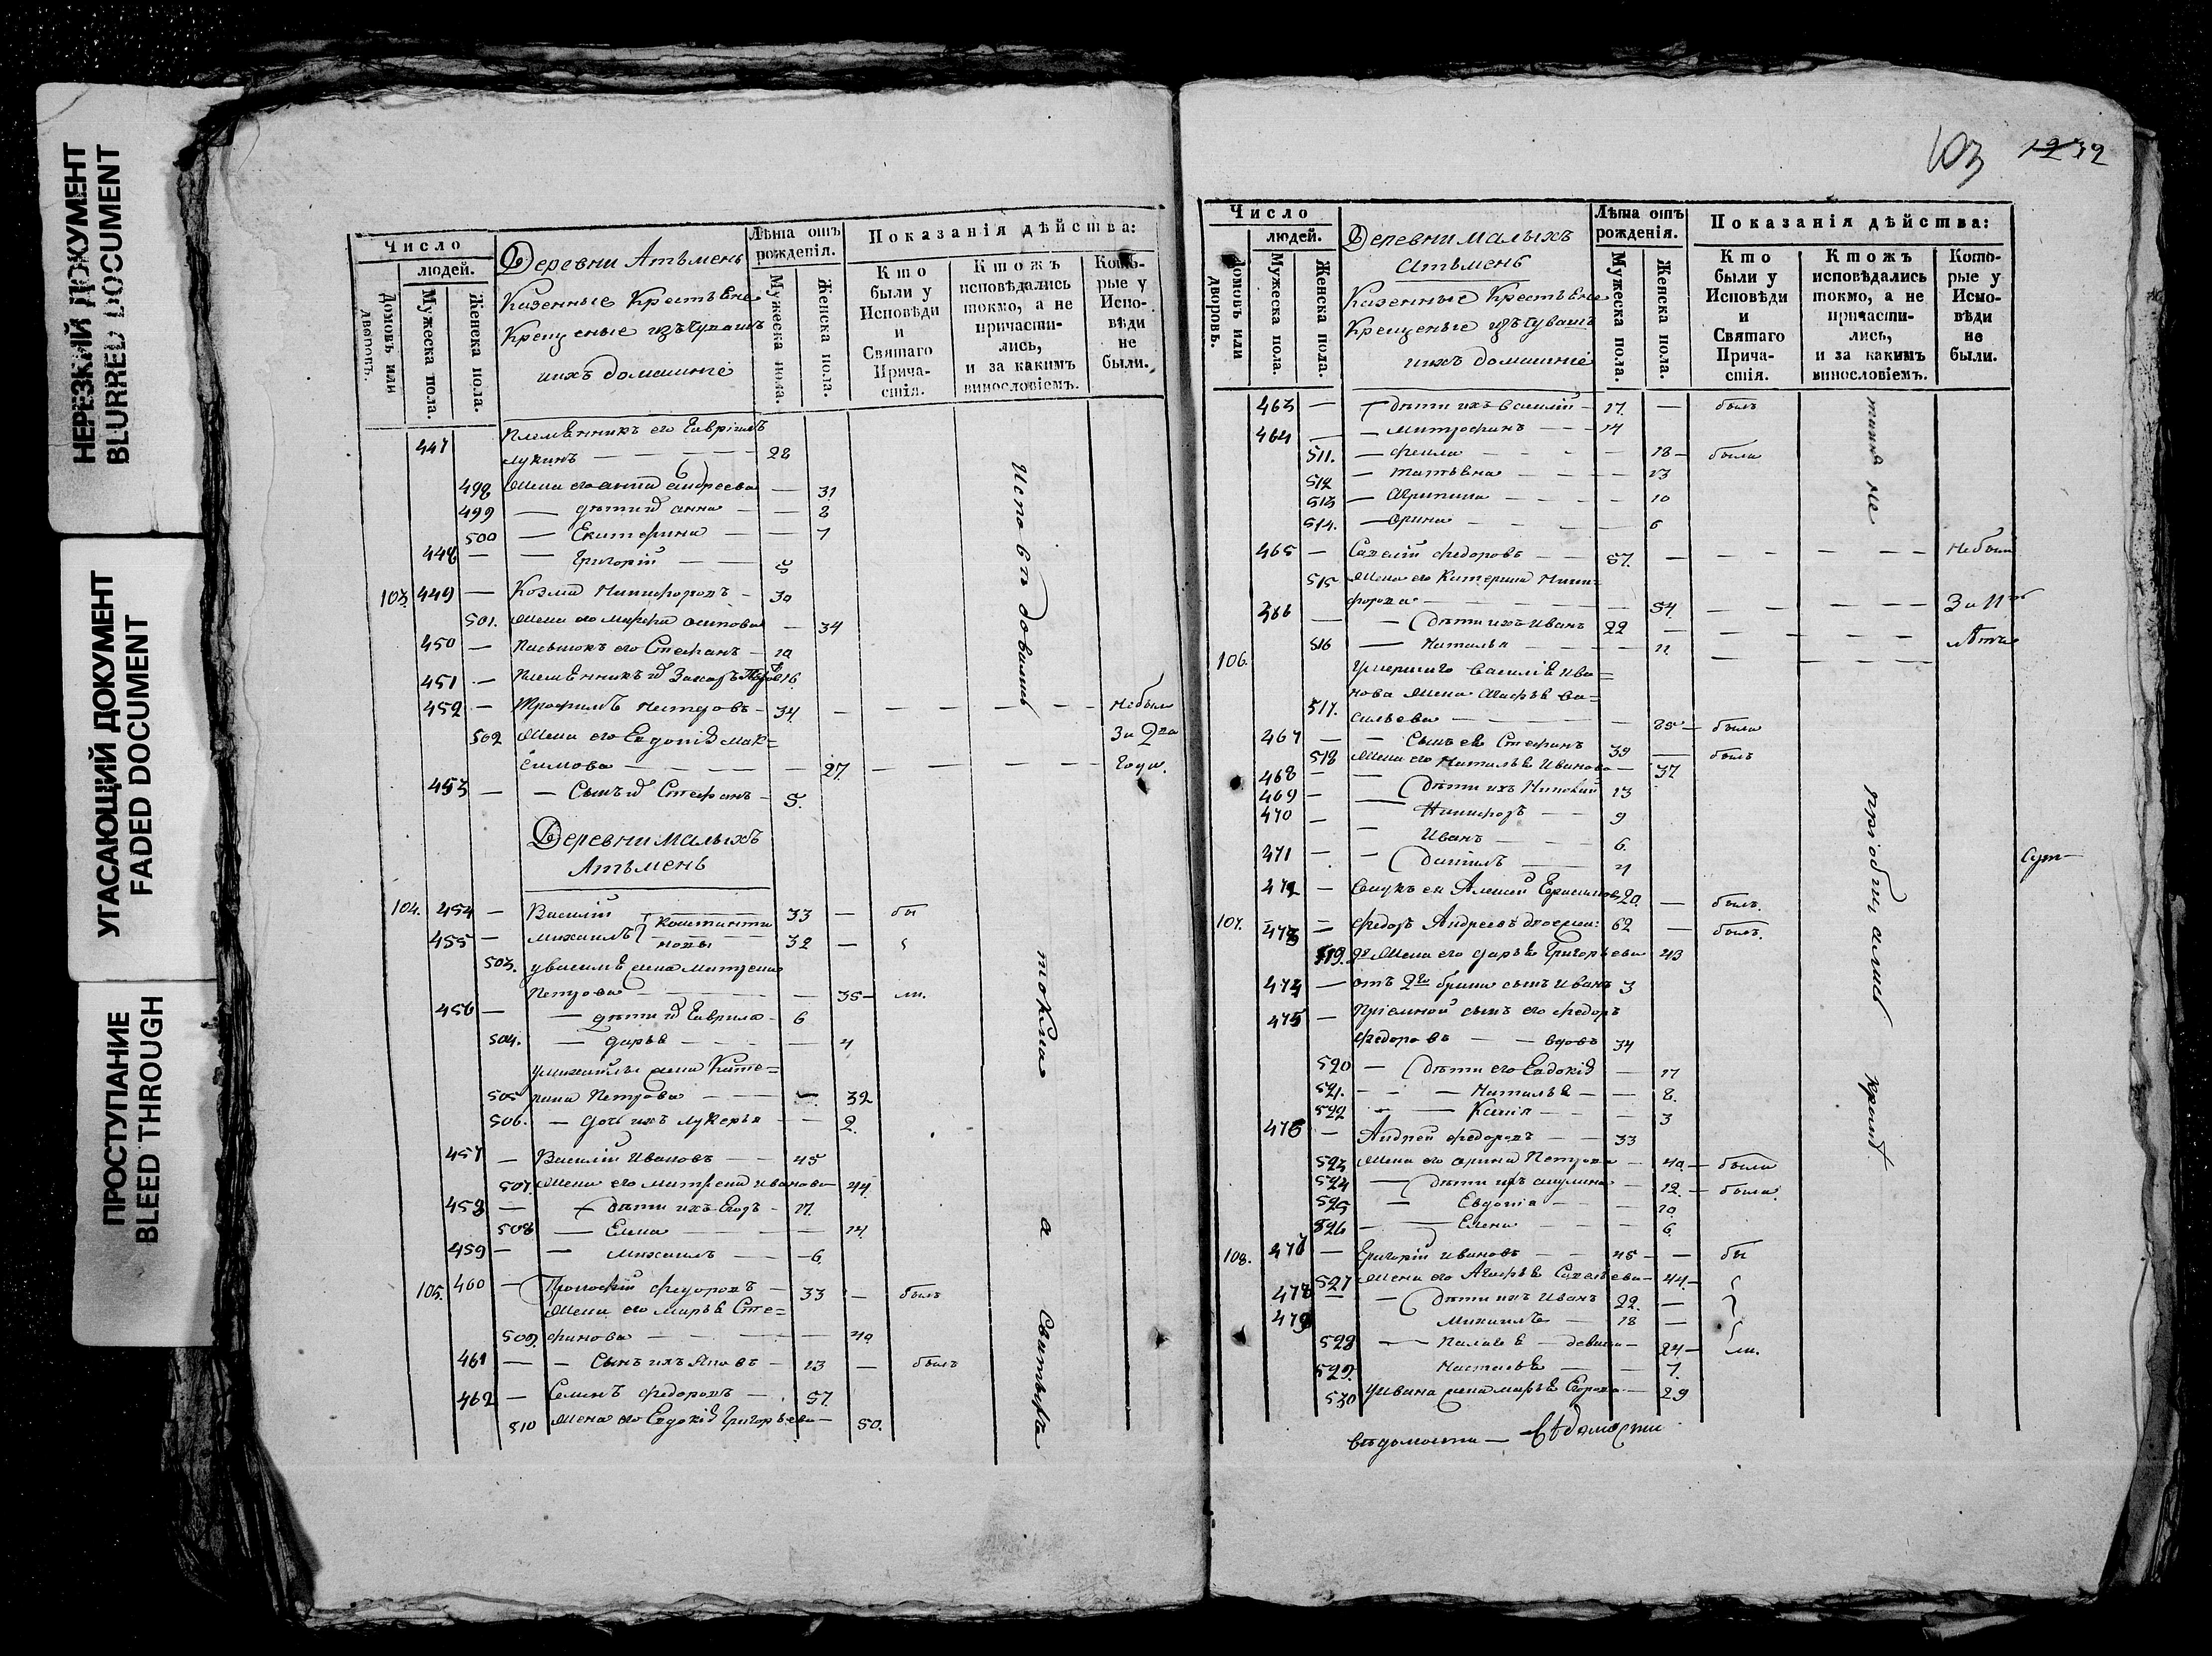 НЕРЕЗКИЙ ДОКУМЕНТ
BLURRED DOCUMENT
УГАСАЮЩИЙ ДОКУМЕНТ
FADED DOCUMENT
ПРОСТУПАНИЕ
BLEED THROUGH
Число
людей.
Домовъ или дворовъ.
Мужеска пола.
Женска пола.
Деревни Атьмень
Казенные Крестьяне
Крещеные изъ Чувашъ
ихъ домашніе
Лѣта отъ рожденія.
Мужеска пола.
Женска пола.
Показанія дѣйства:
Кто были у Исповѣди и Святаго Прича-стія.
Ктожъ исповѣдались токмо, а не причасти-лись, и за какимъ винословіемъ.
Кото-рые у Испо-вѣди не были.
447 Племянникъ его Гавріилъ
Лукинъ 28
498 Жена его Анна Андреева 31
499 дети Анна 8
500 Екатерина 7
448 Григорій 5
103. 449 Козма Никифоровъ 30
501. Жена его Марфа Осипова 34
450 Стефанъ
451 Племянникъ Захаръ 16.
452 Трофимъ 34 Не были
502 Жена его Евдокія Мак= За 2
симова 27. года.
453 Сынъ Стефанъ 5.
Деревни Малыхъ
Атьмень
104. 454 Василій 33 бы
455 Михаилъ Константи
новы 32
503. у Василія жена Матрена
Петрова 35 ли.
456 дети Гаврила 6
504. Дарья 4
у Михаилы жена Кате=
505 рина Петрова 32
506. дочь ихъ Лукерья 2
457 Василій Ивановъ 45
507. Жена его Матрена Иванова 44.
458 дети ихъ Егоръ 17.
508 Елена 14.
459 Михаилъ 6
105. 460 Прокофій Федоровъ 33 былъ
Жена его Марья Сте=
509 фанова 40
461 Сынъ ихъ Яковъ 13 былъ
462 Семенъ Федоровъ 57.
510 Жена его Евдокія Григорьева 50.
Исповѣдовались
токмо
а
Святыхъ
103 1232
Число
людей.
Домовъ или дворовъ.
Мужеска пола.
Женска пола.
Деревни Малыхъ
Атьмень
Казенные Крестьяне
Крещеные изъ Чувашъ
ихъ домашніе
Лѣта отъ рожденія.
Мужеска пола.
Женска пола.
Показанія дѣйства:
Кто были у Исповѣди и Святаго Прича-стія.
Ктожъ исповѣдались токмо, а не причасти-лись, и за какимъ винословіемъ.
Кото-рые у Испо-вѣди не были.
463 дѣти ихъ Василій 17. былъ
464 Митрофанъ 14
511. Фекла 18 была
512 Татьяна 13
513 Агрипина 10
514. Арина 6
465 Савелій Федоровъ 57. Не были
515 Жена его Катерина Ники=
форова 54. За
466 дѣти ихъ Иванъ 22 лѣтъ
516 Наталья 11
106. Умершаго Василія Ива=
нова жена Агафья Ва=
517. сильева 85 была
467 Сынъ ея Стефанъ 39 былъ
518 Жена его Наталья Иванова 37
468 дѣти ихъ Николай 13
469 Никифоръ 9
470 Иванъ 6
471 Данилъ 4
472 Внукъ ея Алексей 20. былъ.
107. 473 Федоръ Андреевъ двоежен: 62 былъ.
519. 2я Жена его Дарья Григорьева 43
474 отъ 2го брака сынъ Иванъ 3
475 Пріемной сынъ его Федоръ
Федоровъ вдовъ 34
520 дѣти его Евдокія 11
521. Наталья 8.
522 Ксенія 3
476 Андрей Федоровъ 33
523 Жена его Арина Петрова 40 была
524 дѣти ихъ Акулина 12. была.
525 Евдокія 10.
526 Елена 6
108. 477 Григорій Ивановъ 45 бы
527 Жена его Агафья Савельева 44
478 дѣти ихъ Иванъ 22.
479 Михаилъ 18
528 Палагея девица 24 ли.
529. Настасья 7.
530 у Ивана жена Марья Егорова 29
таинъ не
пріобщились
Сут-
вѣдомости — Вѣдомости